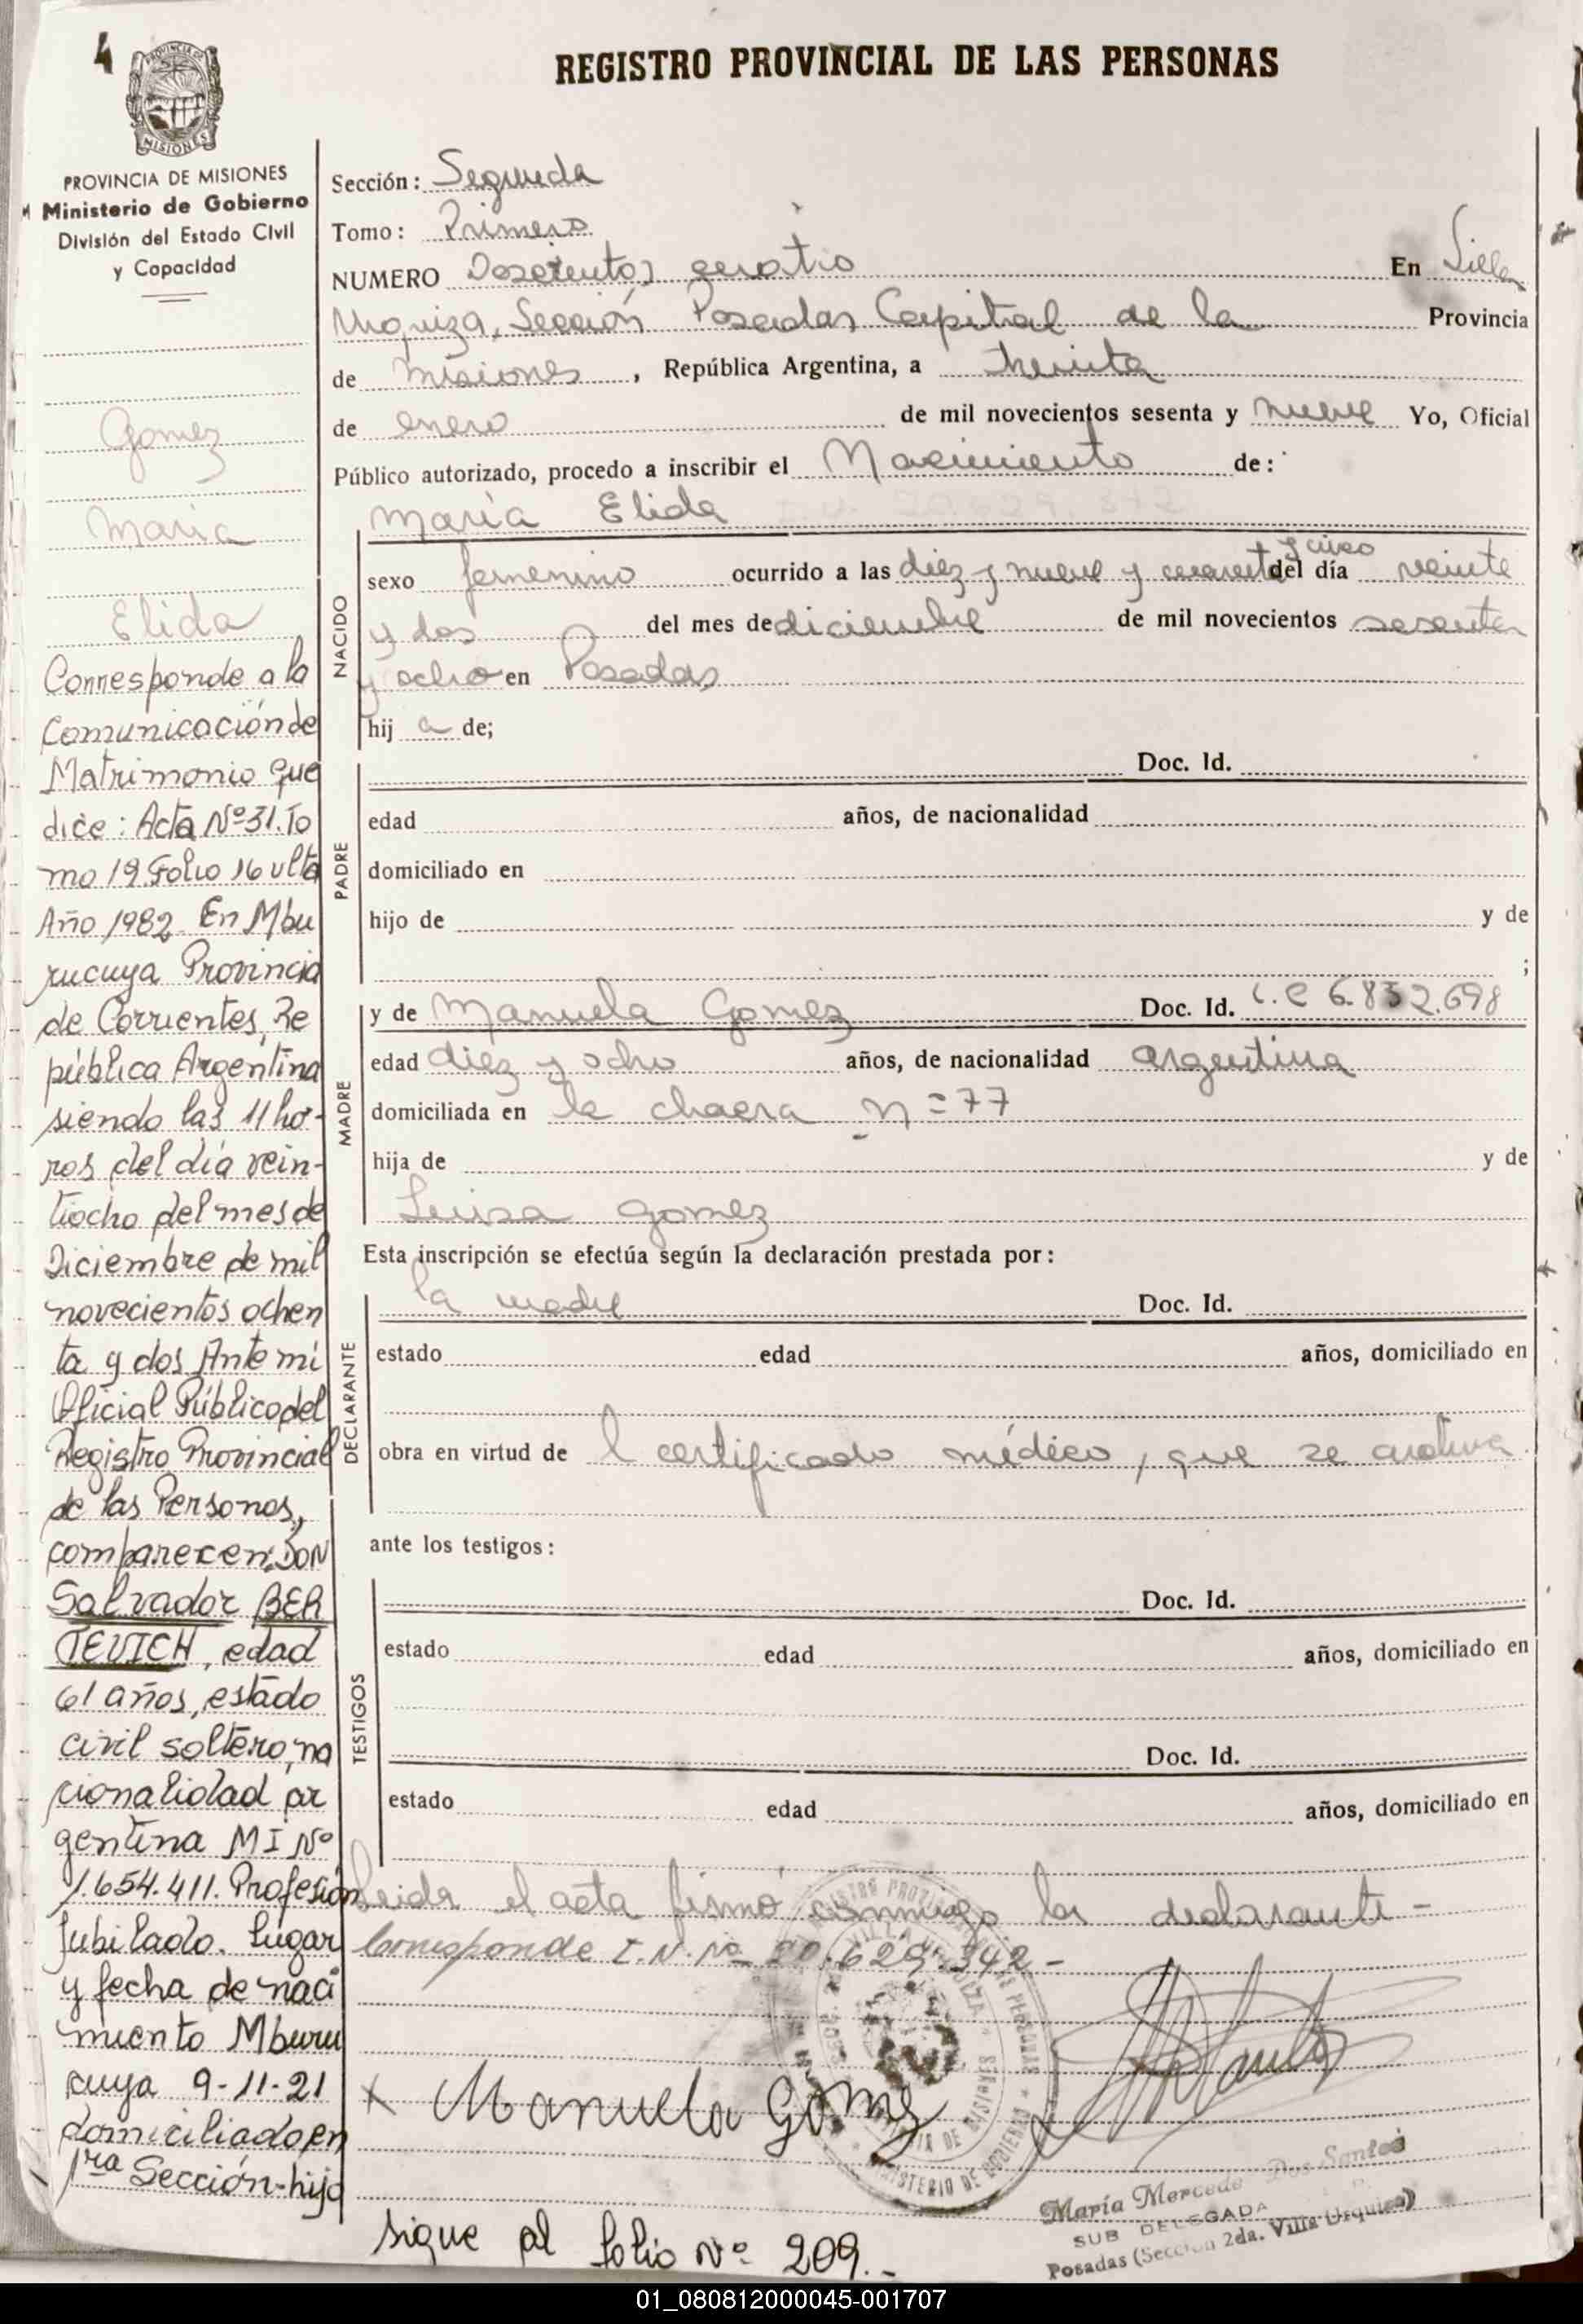 4
REGISTRO PROVINCIAL DE LAS PERSONAS
MISIONES
PROVINCIA DE MISIONES
Ministerio de Gobierno
División del Estado Civil
y Capacidad
Gomez
Maria
Elida
Corresponde a la
Comunicación de
Matrimonio que
dice: Acta Nº 31. To
mo 19 Folio 16 vlta
Año 1982. En Mbu
rucuya Provincia
de Corrientes, Re
pública Argentina
siendo las 11 ho-
ras del día vein-
tiocho del mes de
Diciembre de mil
novecientos ochen
ta y dos Ante mi
Oficial Público del
Registro Provincial
de las Personas,
comparecen: DON
Salvador BER
TEVICH, edad
61 años, estado
civil soltero, na
cionalidad ar
gentina MI Nº
1.654.411. Profesión
Jubilado. Lugar
y fecha de naci
miento Mburu
cuya 9-11-21
domiciliado en
1ra Sección-hijo
Sección: Segunda
Tomo: Primero
NUMERO Doscientos cuatro En Villa
Urquiza, Sección Posadas Capital de la Provincia
de misiones, República Argentina, a treinta
de enero de mil novecientos sesenta y nueve Yo, Oficial
Público autorizado, procedo a inscribir el Nacimiento de:
Maria Elida
NACIDO
sexo femenino ocurrido a las diez y nueve y cuarenta y cinco del día veinte
y dos del mes de diciembre de mil novecientos sesenta
y ocho en Posadas
hij a de;
PADRE
Doc. Id.
edad años, de nacionalidad
domiciliado en
hijo de y de
;
MADRE
y de Manuela Gomez Doc. Id. L.C 6.852.698
edad diez y ocho años, de nacionalidad argentina
domiciliada en la chacra n=77
hija de y de
Luisa gomez
Esta inscripción se efectúa según la declaración prestada por:
DECLARANTE
la madre Doc. Id.
estado edad años, domiciliado en
obra en virtud de l certificado médico, que se archiva.
ante los testigos:
TESTIGOS
Doc. Id.
estado edad años, domiciliado en
Doc. Id.
estado edad años, domiciliado en
Leida el acta firmó conmigo la declarante -
Corresponde I.N. Nº 20.629.342 -
x Manuela Gomez
María Mercede Dos Santos
SUB DELEGADA
Posadas (Sección 2da. Villa Urquiza)
sigue al folio Nº 209.-
01_080812000045-001707